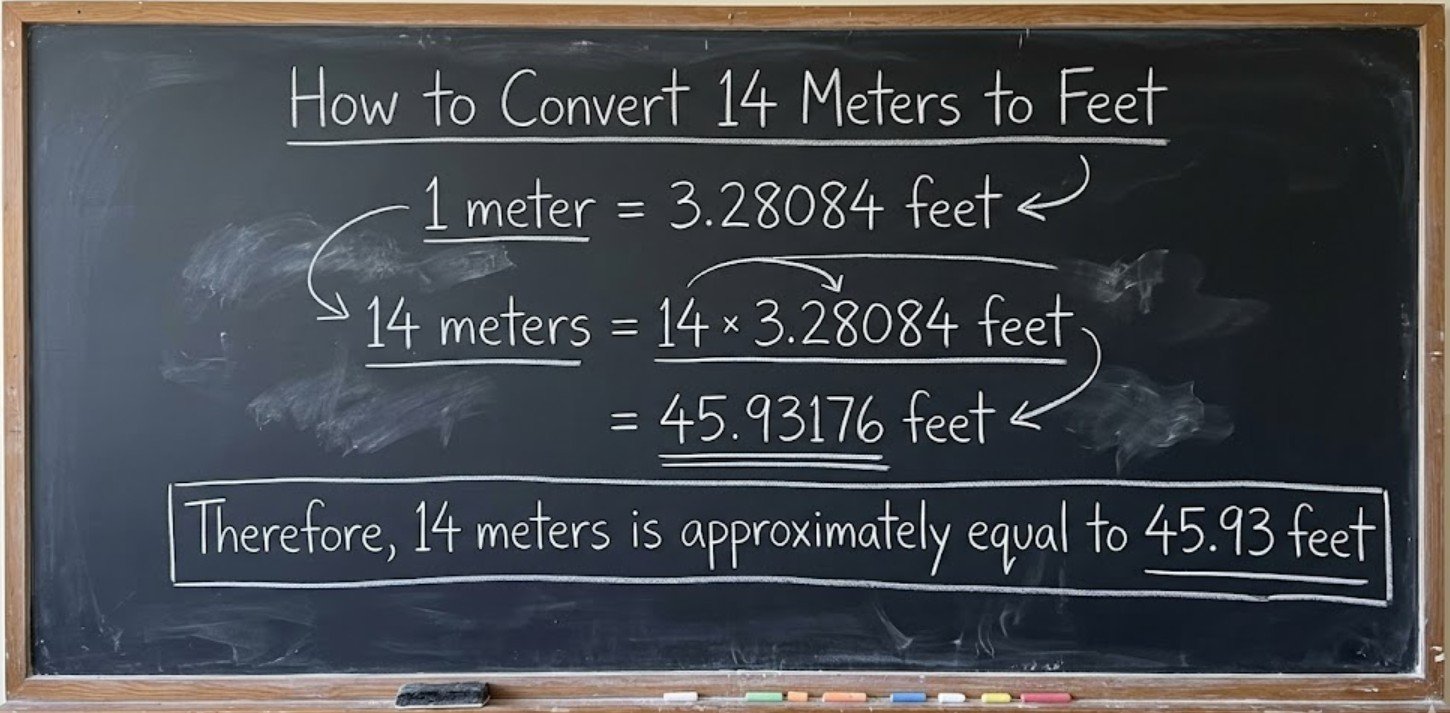 How to Convert 14 Meters to Feet
1 meter = 3.28084 feet
14 meters = 14 × 3.28084 feet
= 45.93176 feet
Therefore, 14 meters is approximately equal to 45.93 feet